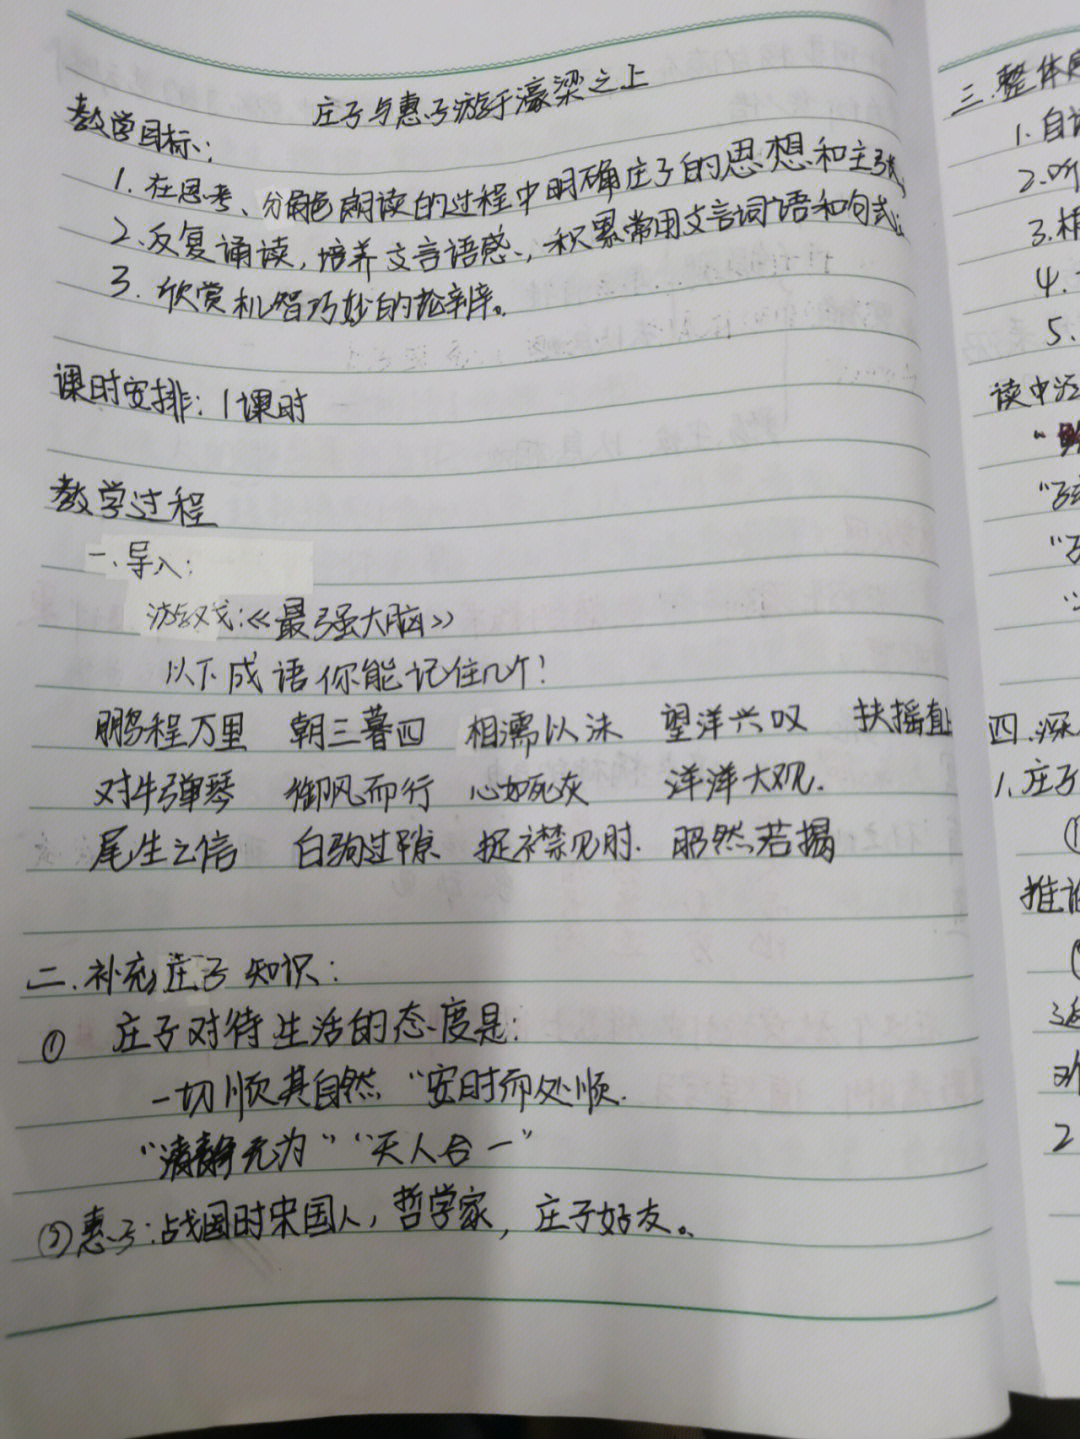 庄子与惠子游于濠梁之上
教学目标:
1. 在思考、分角色朗读的过程中明确庄子的思想和主张;
2、反复诵读,培养文言语感,积累常用文言词语和句式;
3. 欣赏机智巧妙的论辩。
课时安排:1课时
教学过程
一.导入:
游戏:《最强大脑》
以下成语你能记住几个!
鹏程万里 朝三暮四 相濡以沫 望洋兴叹 扶摇直上
对牛弹琴 御风而行 心如死灰 洋洋大观.
尾生之信 白驹过隙 捉襟见肘. 昭然若揭
二.补充庄子知识:
① 庄子对待生活的态度是:
一切顺其自然 “安时而处顺.
“清静无为” “天人合一”
②惠子:战国时宋国人,哲学家,庄子好友。
三.整体
1.自
2.听
3.
4.
5.
读中
四.深
1.庄子
①
推论
2